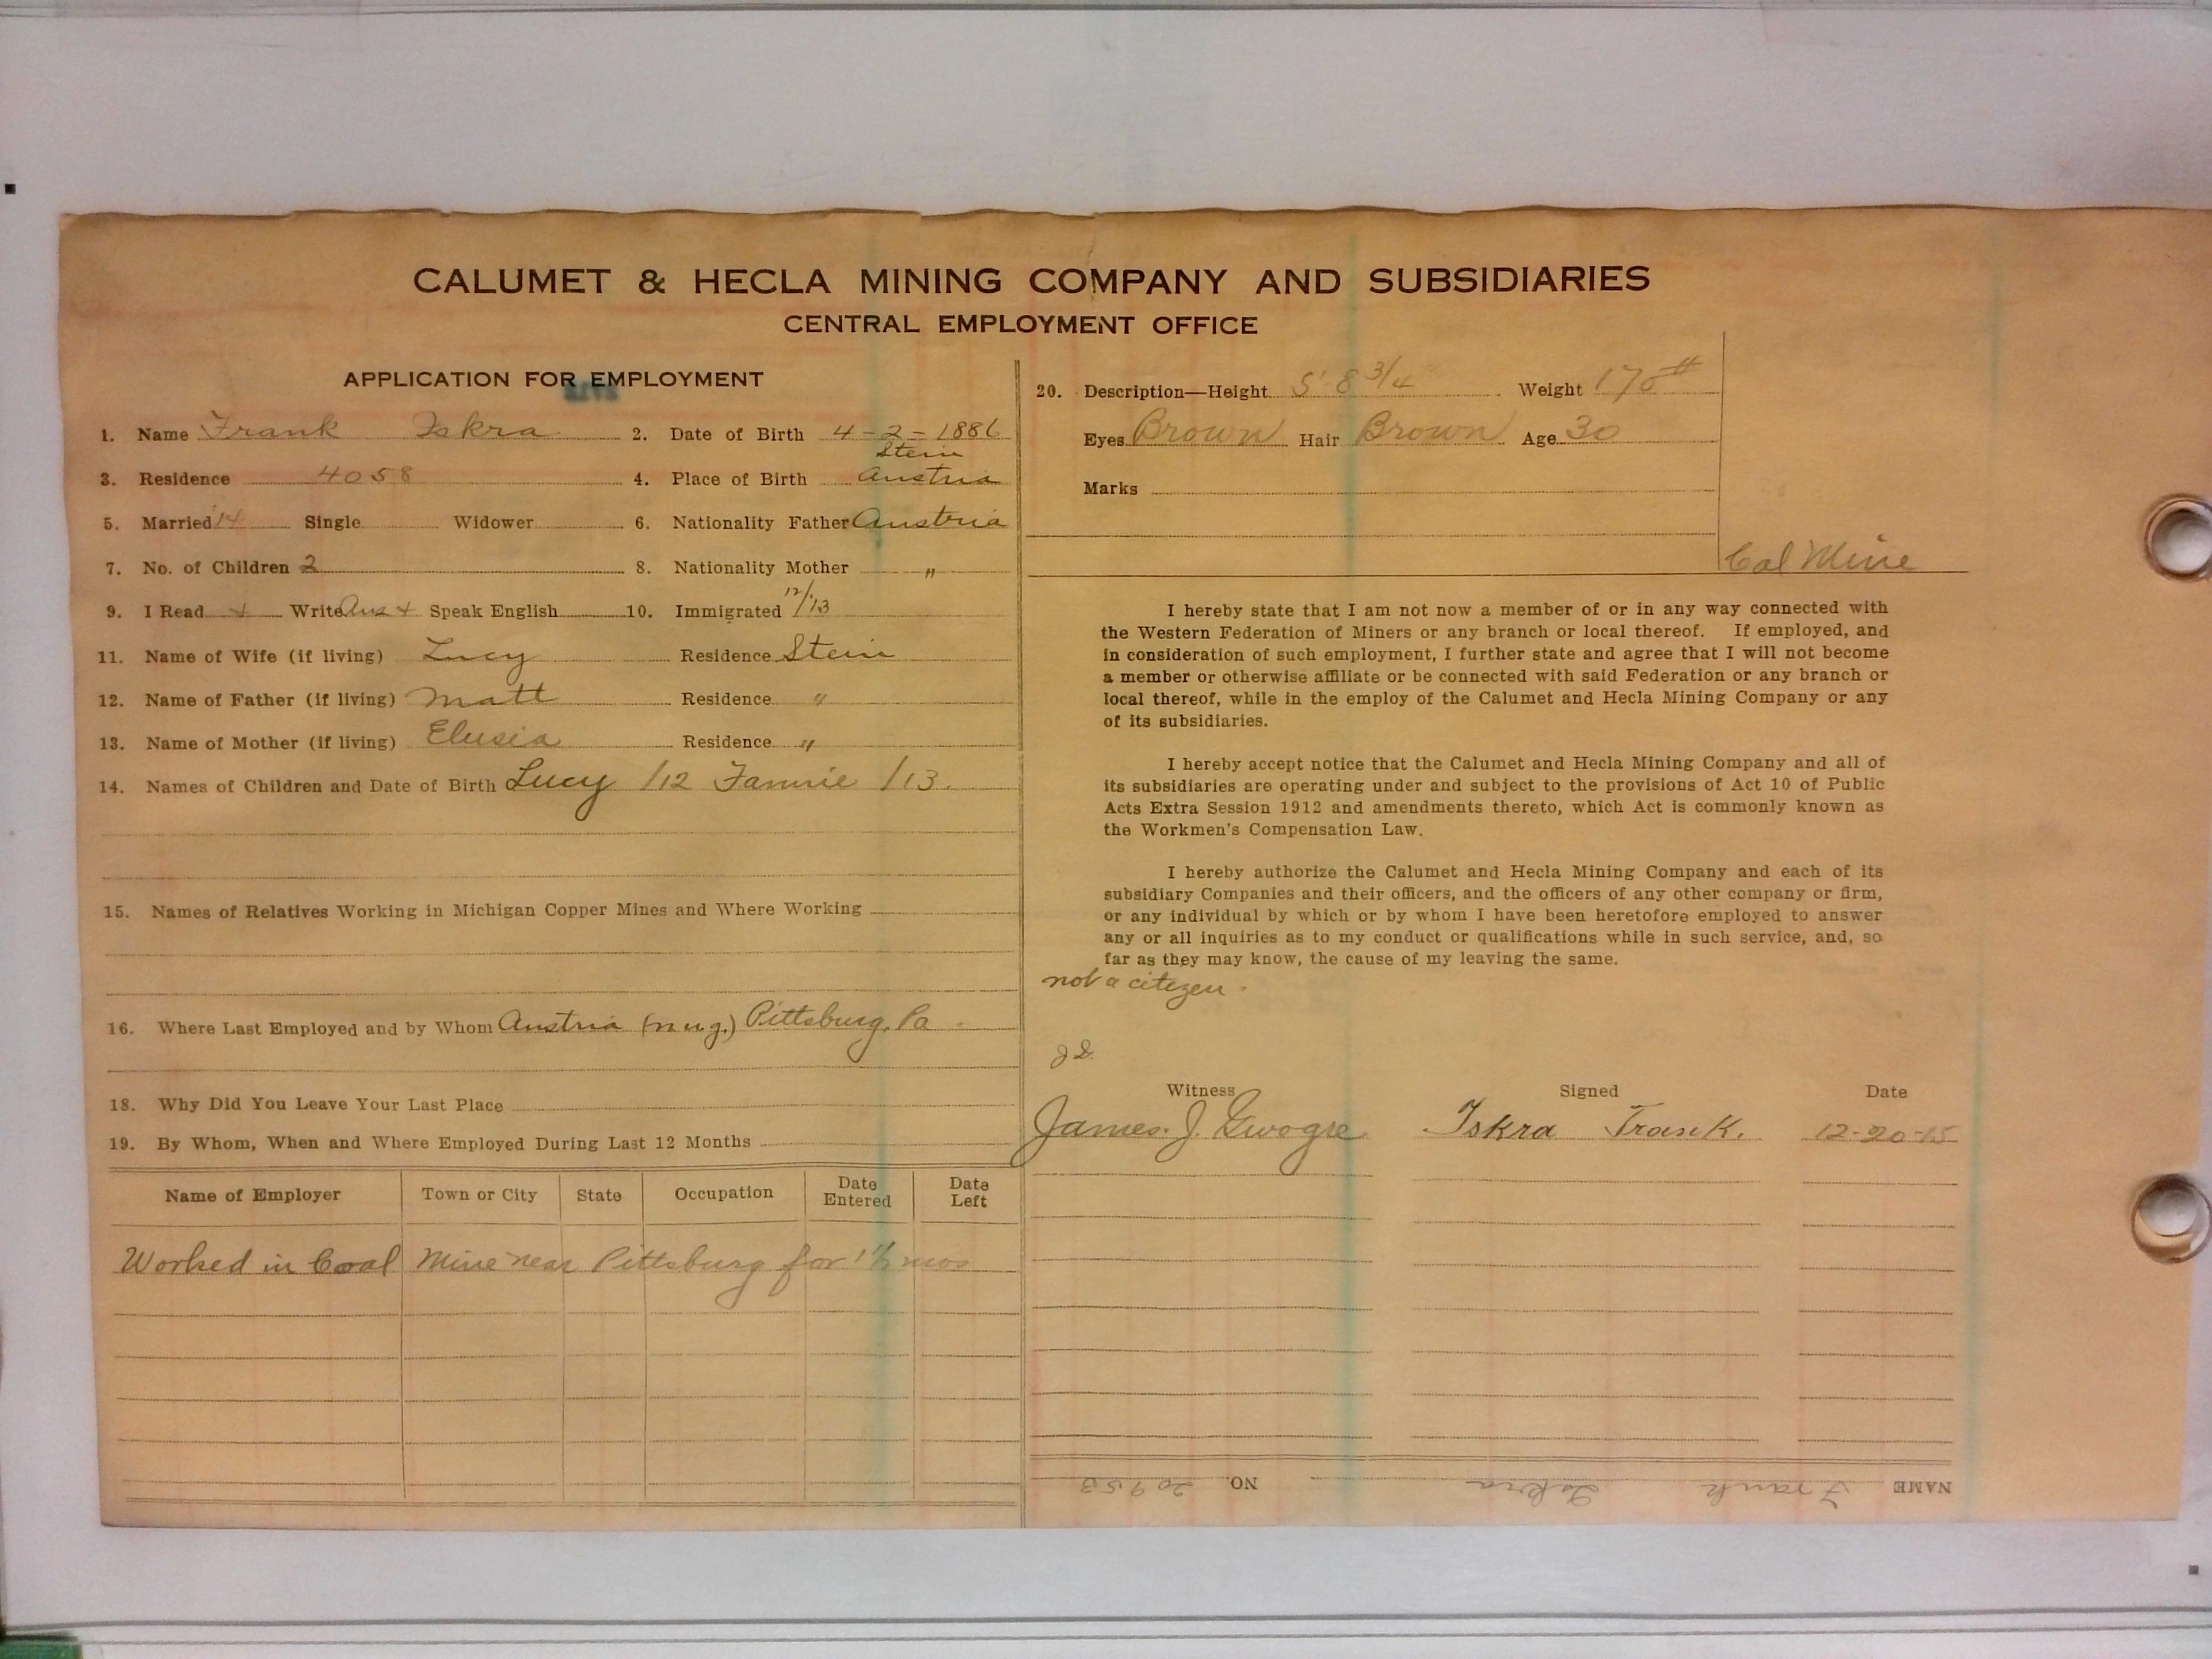 CALUMET & HECLA MINING COMPANY AND SUBSIDIARIES
CENTRAL EMPLOYMENT OFFICE
APPLICATION FOR EMPLOYMENT
1. Name Frank Iskra 2. Date of Birth 4-2-1886
Stein
3. Residence 4058 4. Place of Birth Austria
5. Married '14 Single Widower 6. Nationality Father Austria
7. No. of Children 2 8. Nationality Mother "
9. I Read + Write Aus + Speak English 10. Immigrated 12/'13
11. Name of Wife (if living) Lucy Residence Stein
12. Name of Father (if living) Matt Residence "
13. Name of Mother (if living) Elusia Residence "
14. Names of Children and Date of Birth Lucy /12 Fannie /13.
15. Names of Relatives Working in Michigan Copper Mines and Where Working
16. Where Last Employed and by Whom Austria Pittsburg, Pa.
18. Why Did You Leave Your Last Place
19. By Whom, When and Where Employed During Last 12 Months
Name of Employer Town or City State Occupation Date Entered Date Left
Worked in Coal Mine near Pittsburg for 1 1/2 mos
20. Description—Height 5' 8 3/4" Weight 170#
Eyes Brown Hair Brown Age 30
Marks
Cal Mine
I hereby state that I am not now a member of or in any way connected with
the Western Federation of Miners or any branch or local thereof. If employed, and
in consideration of such employment, I further state and agree that I will not become
a member or otherwise affiliate or be connected with said Federation or any branch or
local thereof, while in the employ of the Calumet and Hecla Mining Company or any
of its subsidiaries.
I hereby accept notice that the Calumet and Hecla Mining Company and all of
its subsidiaries are operating under and subject to the provisions of Act 10 of Public
Acts Extra Session 1912 and amendments thereto, which Act is commonly known as
the Workmen's Compensation Law.
I hereby authorize the Calumet and Hecla Mining Company and each of its
subsidiary Companies and their officers, and the officers of any other company or firm,
or any individual by which or by whom I have been heretofore employed to answer
any or all inquiries as to my conduct or qualifications while in such service, and, so
far as they may know, the cause of my leaving the same.
not a citizen.
Witness Signed Date
James J. Iskra Frank. 12-20-15
NAME Frank Iskra NO. 20953